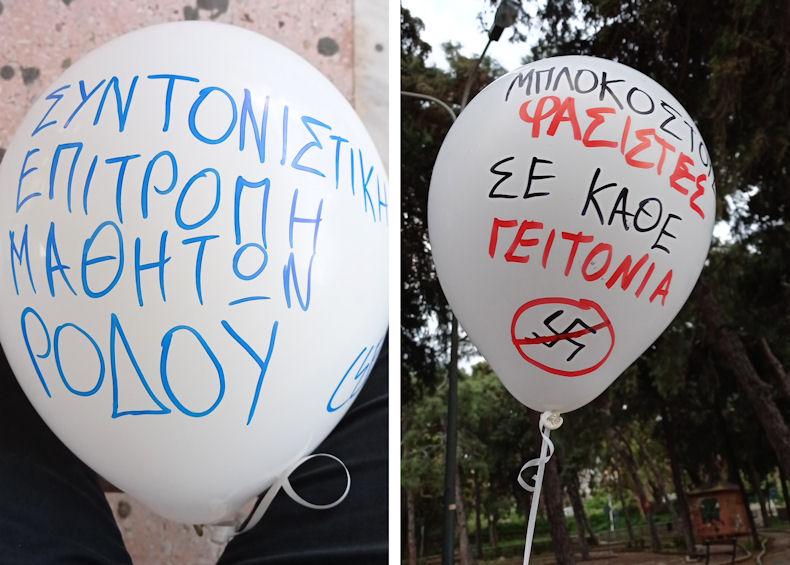 ΣΥΝΤΟΝΙΣΤΙΚΗ
ΕΠΙΤΡΟΠΗ
ΜΑΘΗΤΩΝ
ΡΟΔΟΥ
ΜΠΛΟΚΟ ΣΤΟΥΣ
ΦΑΣΙΣΤΕΣ
ΣΕ ΚΑΘΕ
ΓΕΙΤΟΝΙΑ